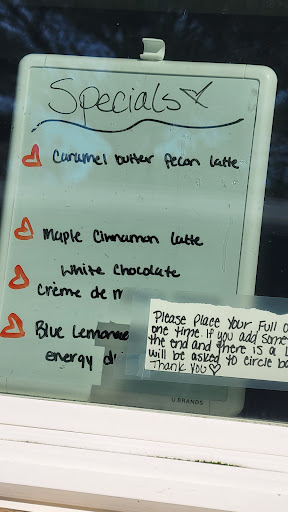 Specials
Caramel butter pecan latte
Maple Cinnamon latte
White Chocolate
Crème de m
Blue Lemonade
energy d
Please Place Your Full O
one time. If you add some
the end and there is a L
will be asked to circle ba
Thank you
U BRANDS